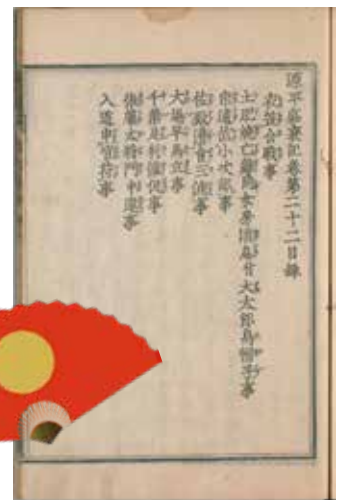 源平盛衰記巻第二十二目録
衣笠合戦事
土肥焼亡舞同女房消息付大太郎烏帽子事
宗遠値小次郎事
佐殿漕会三浦事
大場早馬立事
千葉足利催促事
俵藤太将門中違事
入道申官符事